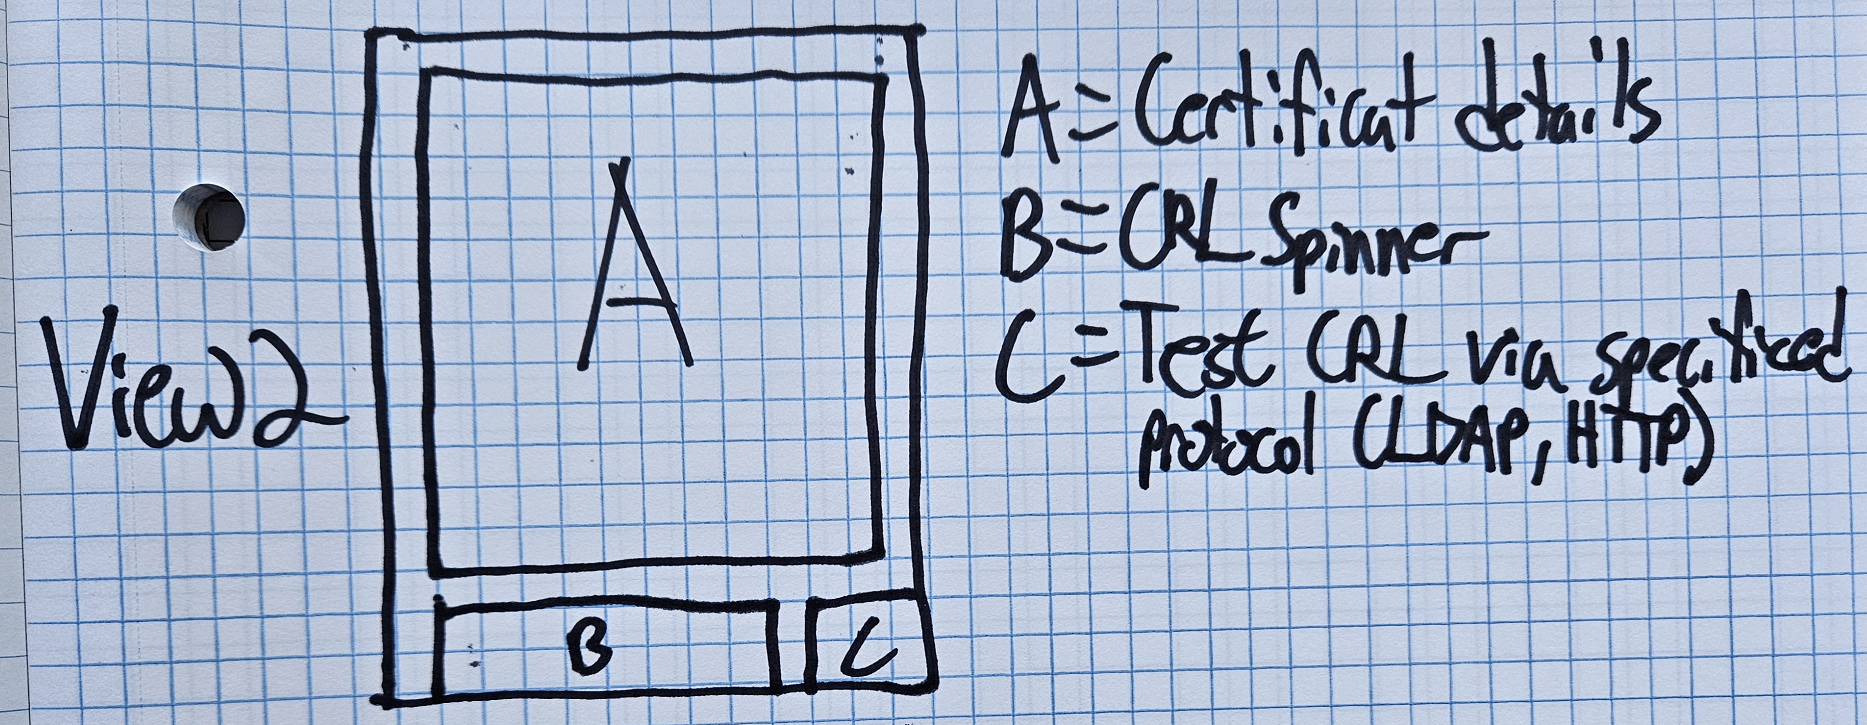 View 2
A
B
C
A = Certificat details
B = CRL Spinner
C = Test CRL via specificed
protocol (LDAP, HTTP)